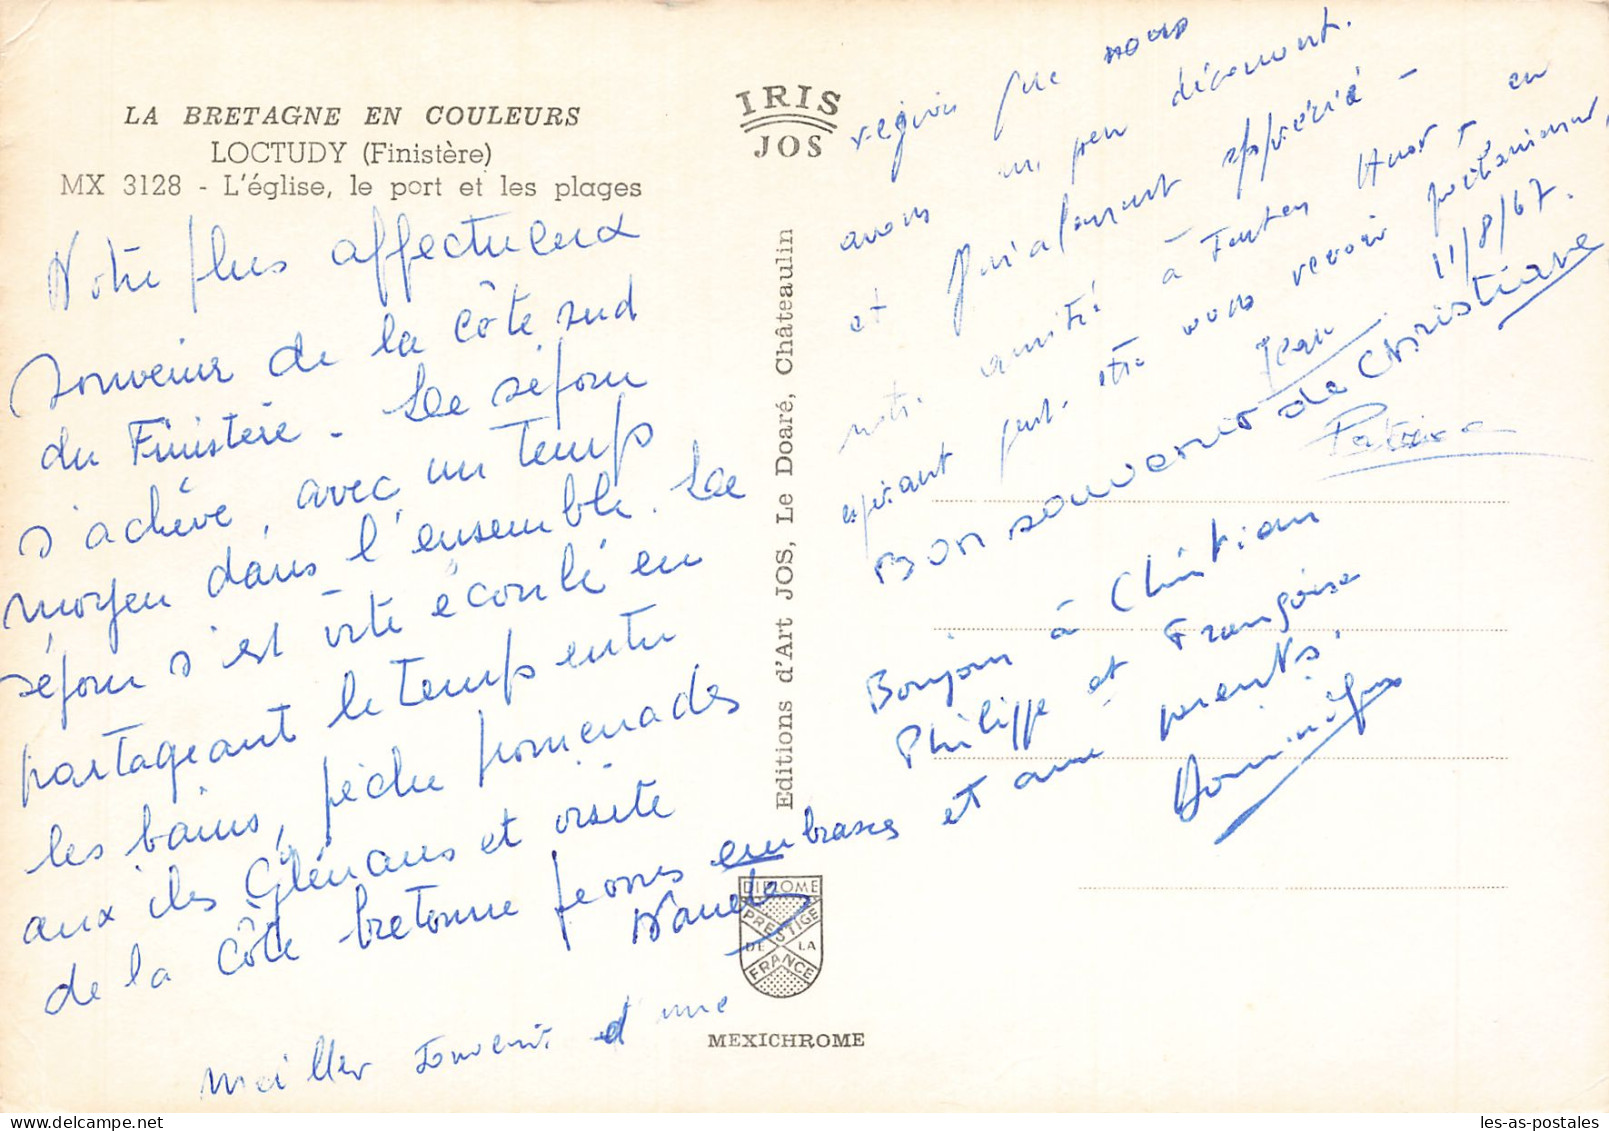 LA BRETAGNE EN COULEURS
LOCTUDY (Finistère)
MX 3128 - L'église, le port et les plages
Notre plus affectueux
souvenir de la côte sud
du Finistère - Le séjour
s'achève, avec un temps
moyen dans l'ensemble. Le
séjour s'est vite écoulé en
partageant le temps entre
les bains, pêche promenades
aux iles Glénans et visite
de la côte bretonne
embrasses et
meiller souvenir d'une
région que nous
avons un peu découvert.
et
apprécié -
notre amitié à
en
espérant peut-être vous revoir prochainement,
Jean
11/8/67.
Bon souvenir de Christiane
Bonjour à Christian
Philippe et Françoise
et aux parents.
Dominique
IRIS
JOS
Editions d'Art JOS, Le Doaré, Châteaulin
DIPLOME
PRESTIGE
DE LA
FRANCE
MEXICHROME
les-as-postales